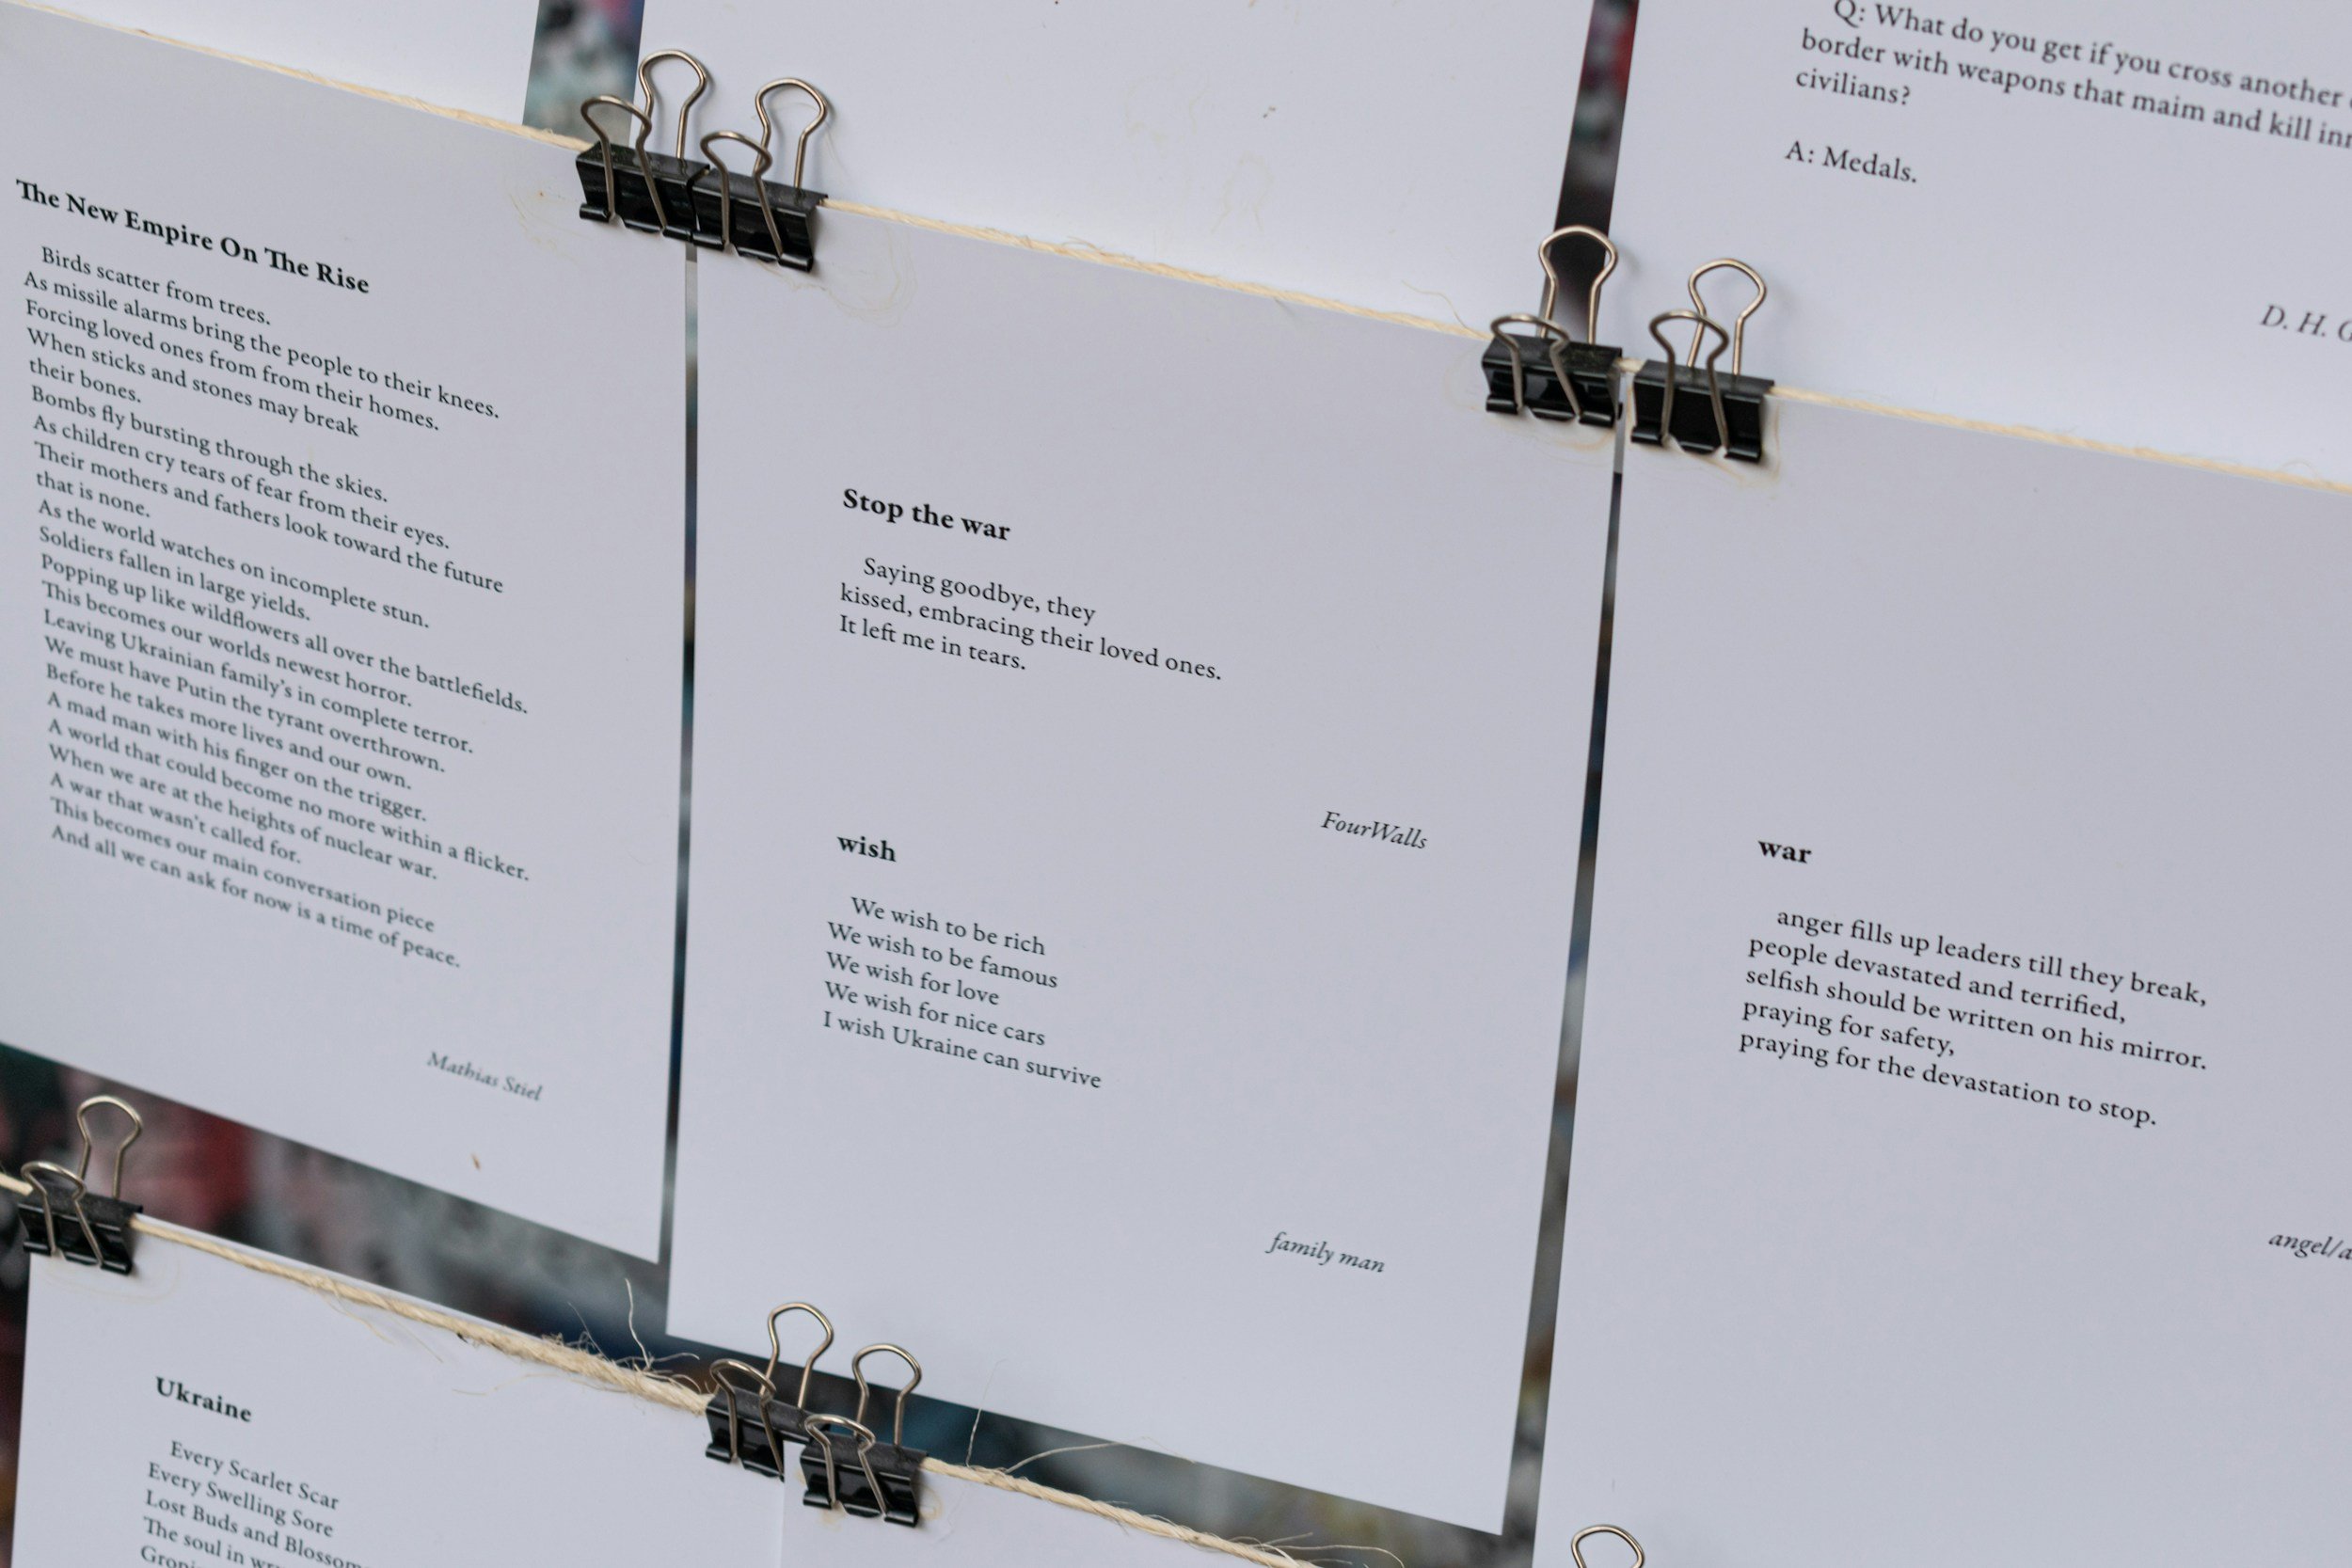 Q: What do you get if you cross another
border with weapons that maim and kill
civilians?
A: Medals.
D. H.
The New Empire On The Rise
Birds scatter from trees.
As missile alarms bring the people to their knees.
Forcing loved ones from from their homes.
When sticks and stones may break
their bones.
Bombs fly bursting through the skies.
As children cry tears of fear from their eyes.
Their mothers and fathers look toward the future
that is none.
As the world watches on incomplete stun.
Soldiers fallen in large yields.
Popping up like wildflowers all over the battlefields.
This becomes our worlds newest horror.
Leaving Ukrainian family's in complete terror.
We must have Putin the tyrant overthrown.
Before he takes more lives and our own.
A mad man with his finger on the trigger.
A world that could become no more within a flicker.
When we are at the heights of nuclear war.
A war that wasn't called for.
This becomes our main conversation piece
And all we can ask for now is a time of peace.
Mathias Stiel
Stop the war
Saying goodbye, they
kissed, embracing their loved ones.
It left me in tears.
FourWalls
wish
We wish to be rich
We wish to be famous
We wish for love
We wish for nice cars
I wish Ukraine can survive
family man
war
anger fills up leaders till they break,
people devastated and terrified,
selfish should be written on his mirror.
praying for safety,
praying for the devastation to stop.
angel/
Ukraine
Every Scarlet Scar
Every Swelling Sore
Lost Buds and Blossom
The soul in